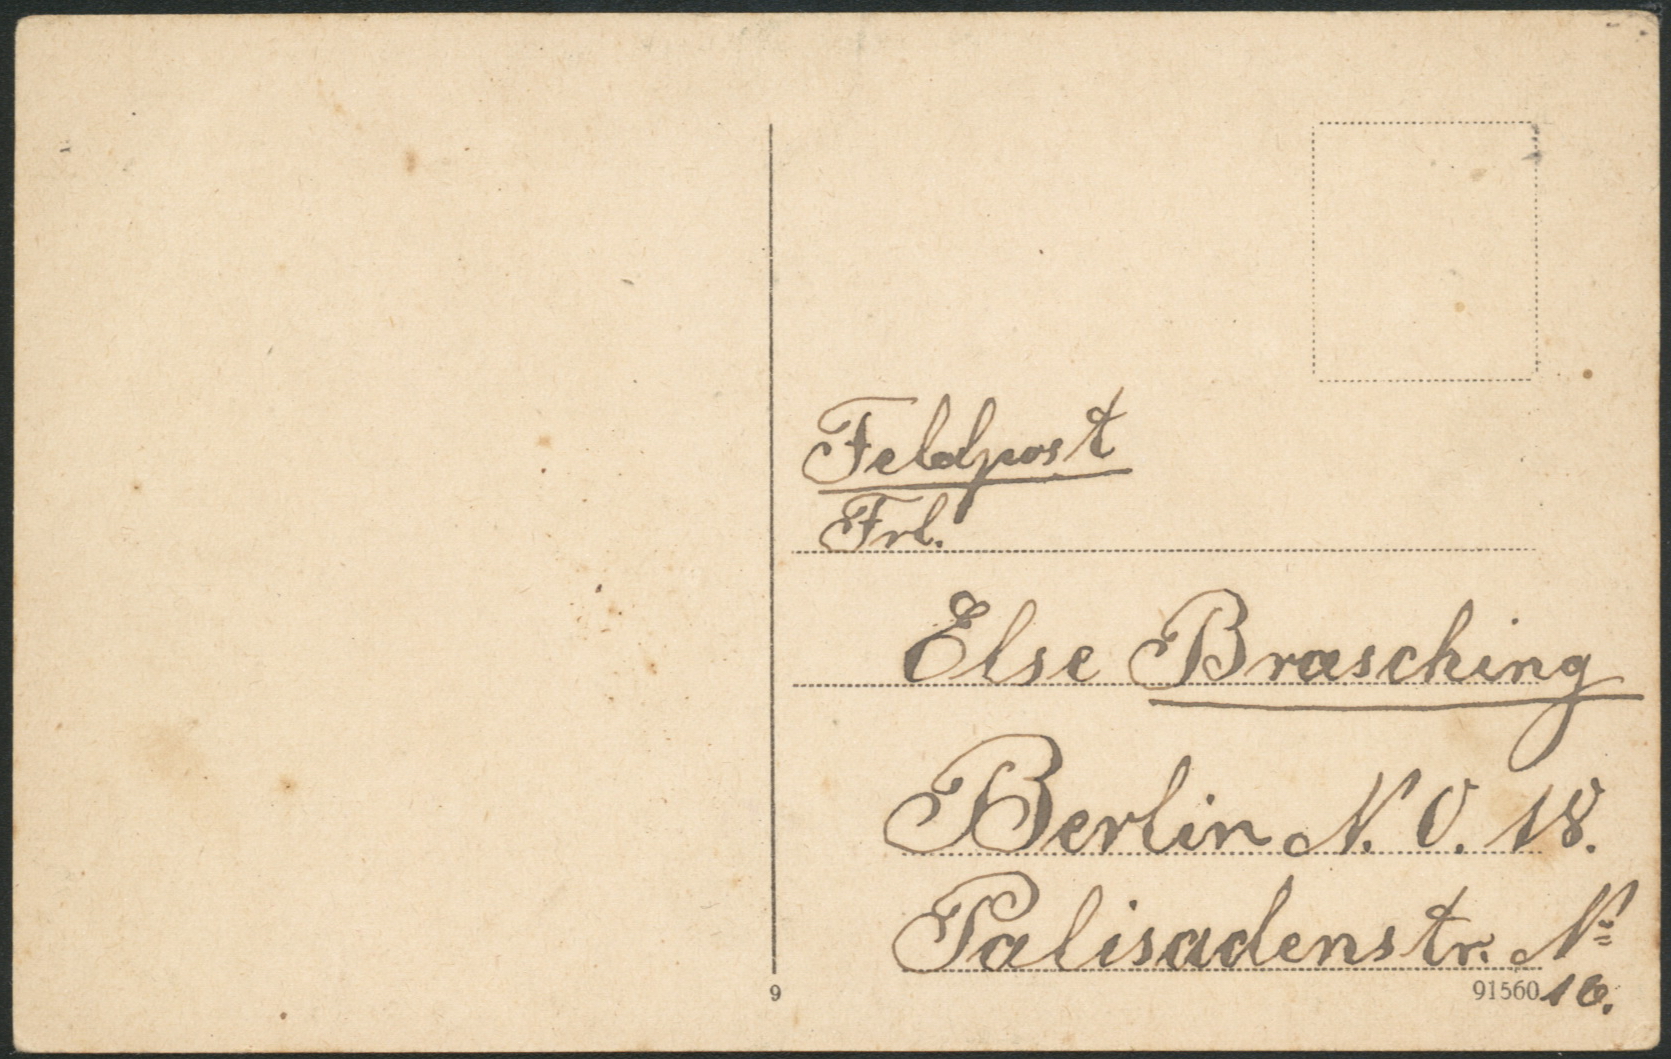 Feldpost
Frl.
Else Brasching
Berlin N. O. 18.
Palisadenstr. No
16.
9
91560